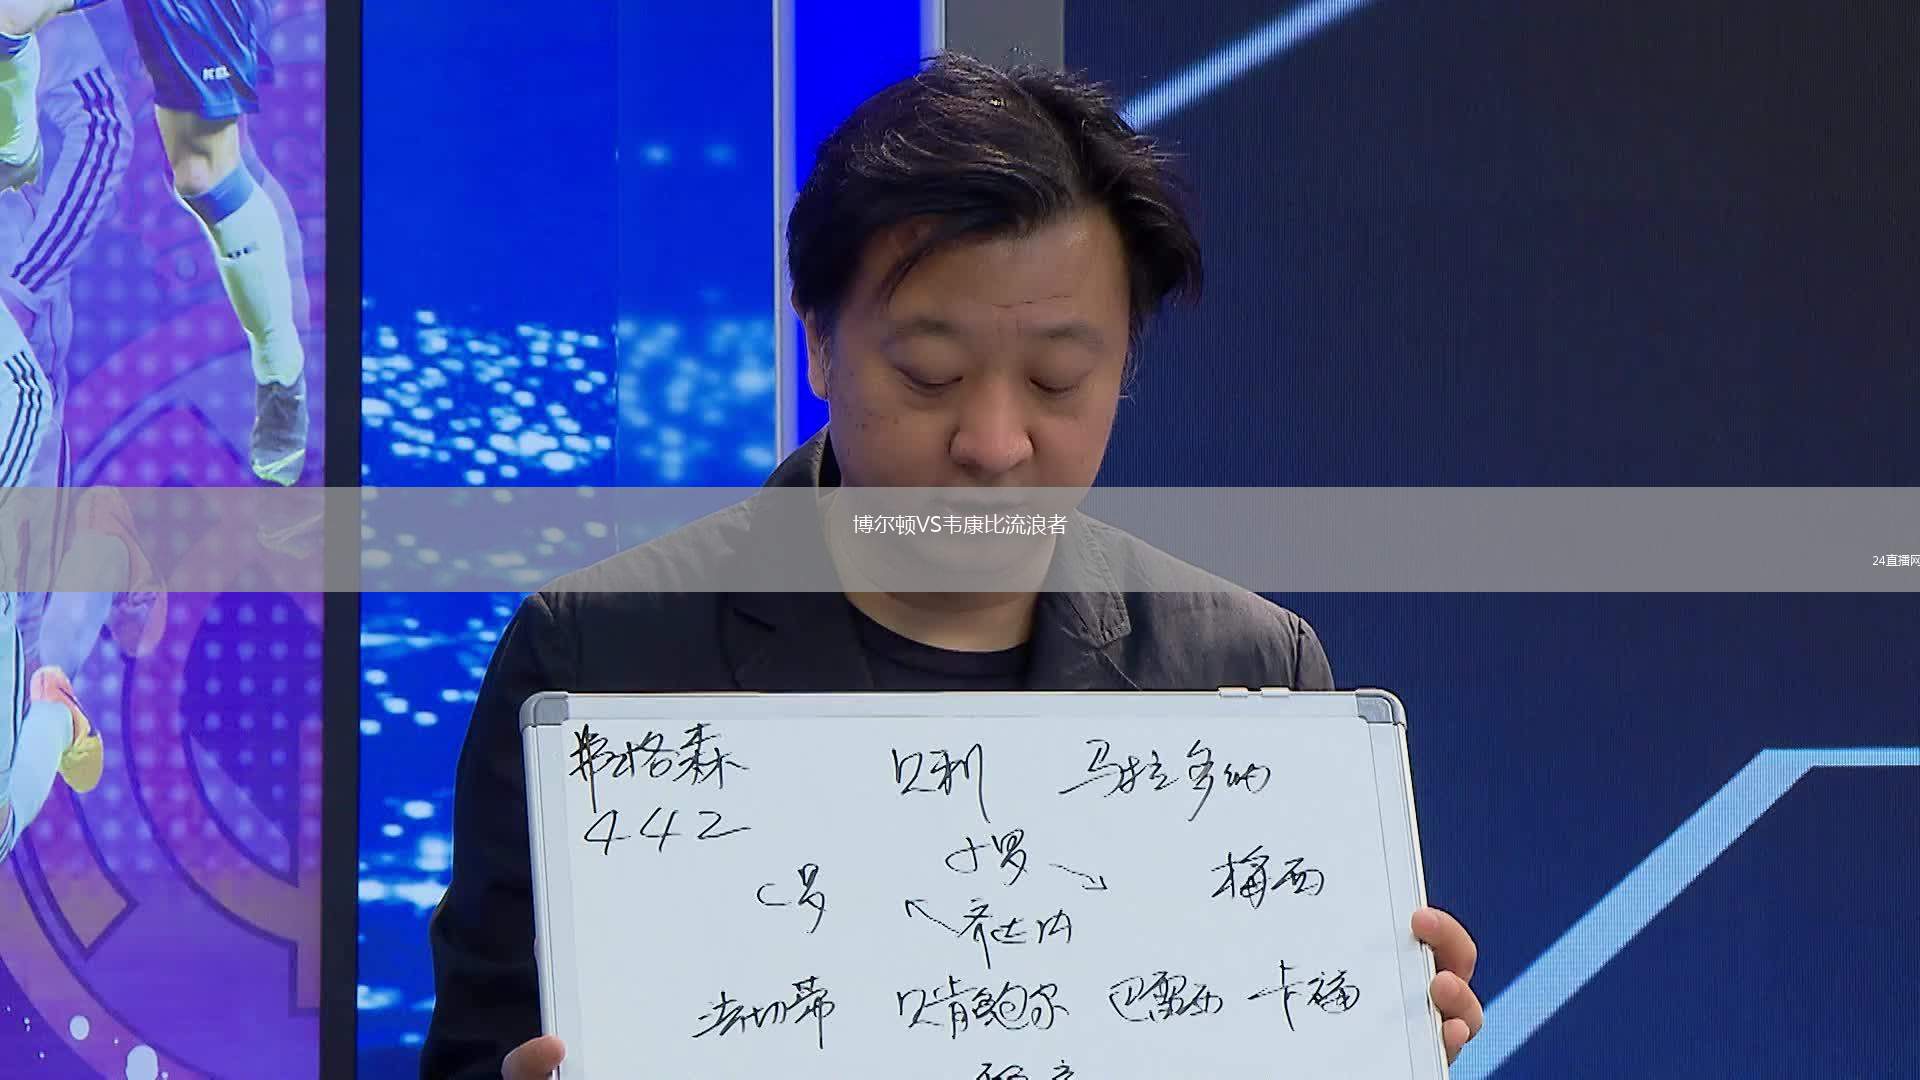 博尔顿VS韦康比流浪者
24直播网
弗格森 贝利 马拉多纳
442
小罗
C罗 梅西
齐达内
法切蒂 贝肯鲍尔 巴雷西 卡福